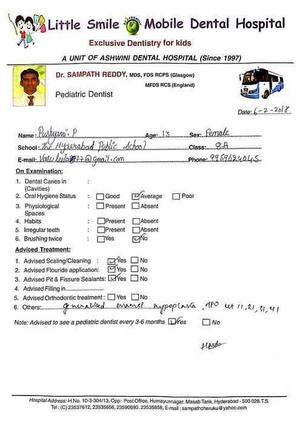 Little Smile Mobile Dental Hospital
Exclusive Dentistry for kids
A UNIT OF ASHWINI DENTAL HOSPITAL (Since 1997)
Dr. SAMPATH REDDY, MDS, FDS RCPS (Glasgow)
MFDS RCS (England)
Pediatric Dentist
Date: 6-2-2018
Name: P Age: 13 Sex: Female
School: The Hyderabad Public School Class: 8A
E-mail: @gmail.com Phone:
On Examination:
1. Dental Caries in
(Cavities)
2. Oral Hygiene Status : Good Average Poor
3. Physiological : Present Absent
Spaces
4. Habits : Present Absent
5. Irregular teeth : Present Absent
6. Brushing twice : Yes No
Adviced Treatment:
1. Advised Scaling/Cleaning : Yes No
2. Advised Flouride application: Yes No
3. Advised Pit & Fissure Sealants: Yes No
4. Advised Filling in
5. Advised Orthodontic treatment : Yes No
6. Others: generalised enamel hypoplasia, 11, 21, 41
Note: Advised to see a pediatric dentist every 3-6 months Yes No
Hospital Address: H.No. 10-3-304/13, Opp: Post Office, Humayunnagar, Masab Tank, Hyderabad - 500 028.T.S.
Tel: (C) 23537612, 23535656, 23590690, 23535858, E-mail : sampathcheruku@yahoo.com